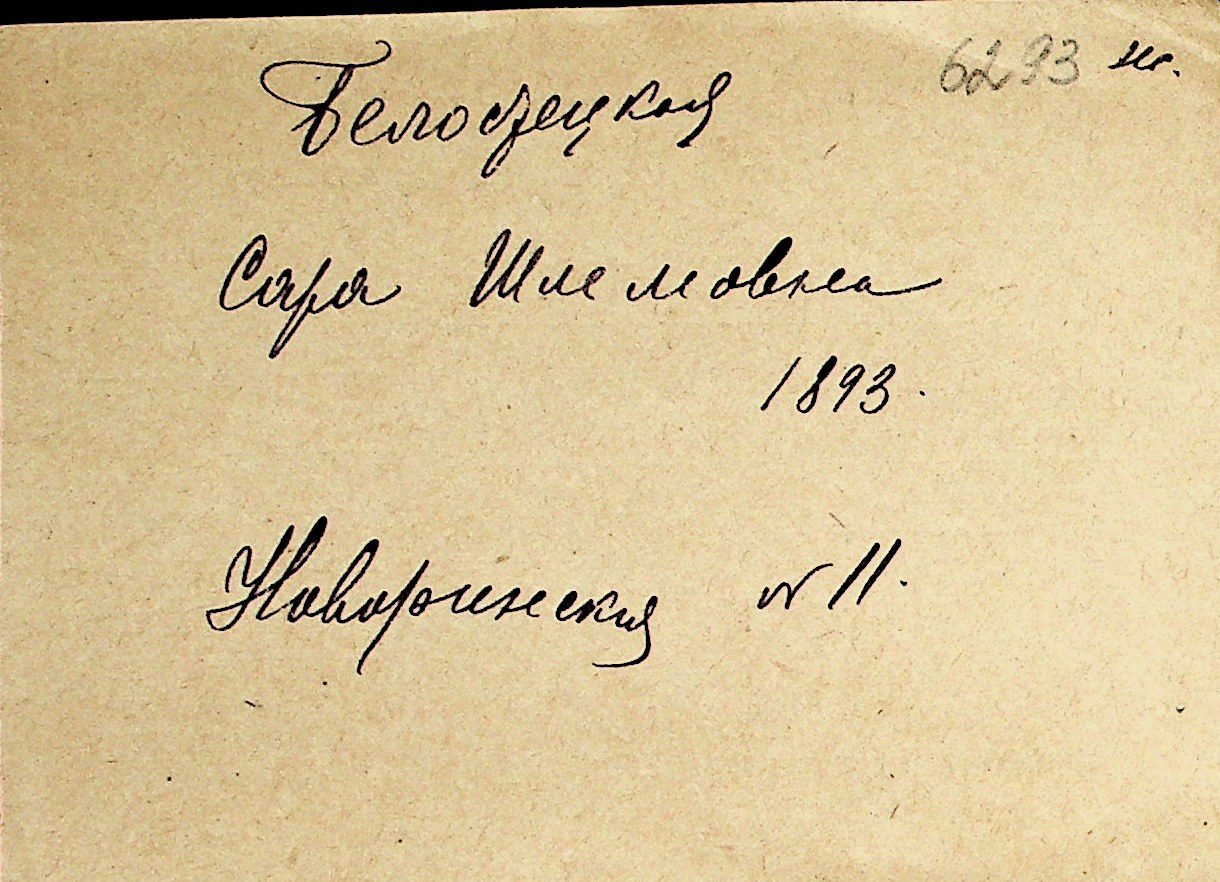 6293 ж.
Белостецкая
Сара Шлемовна
1893.
Новоринская № 11.